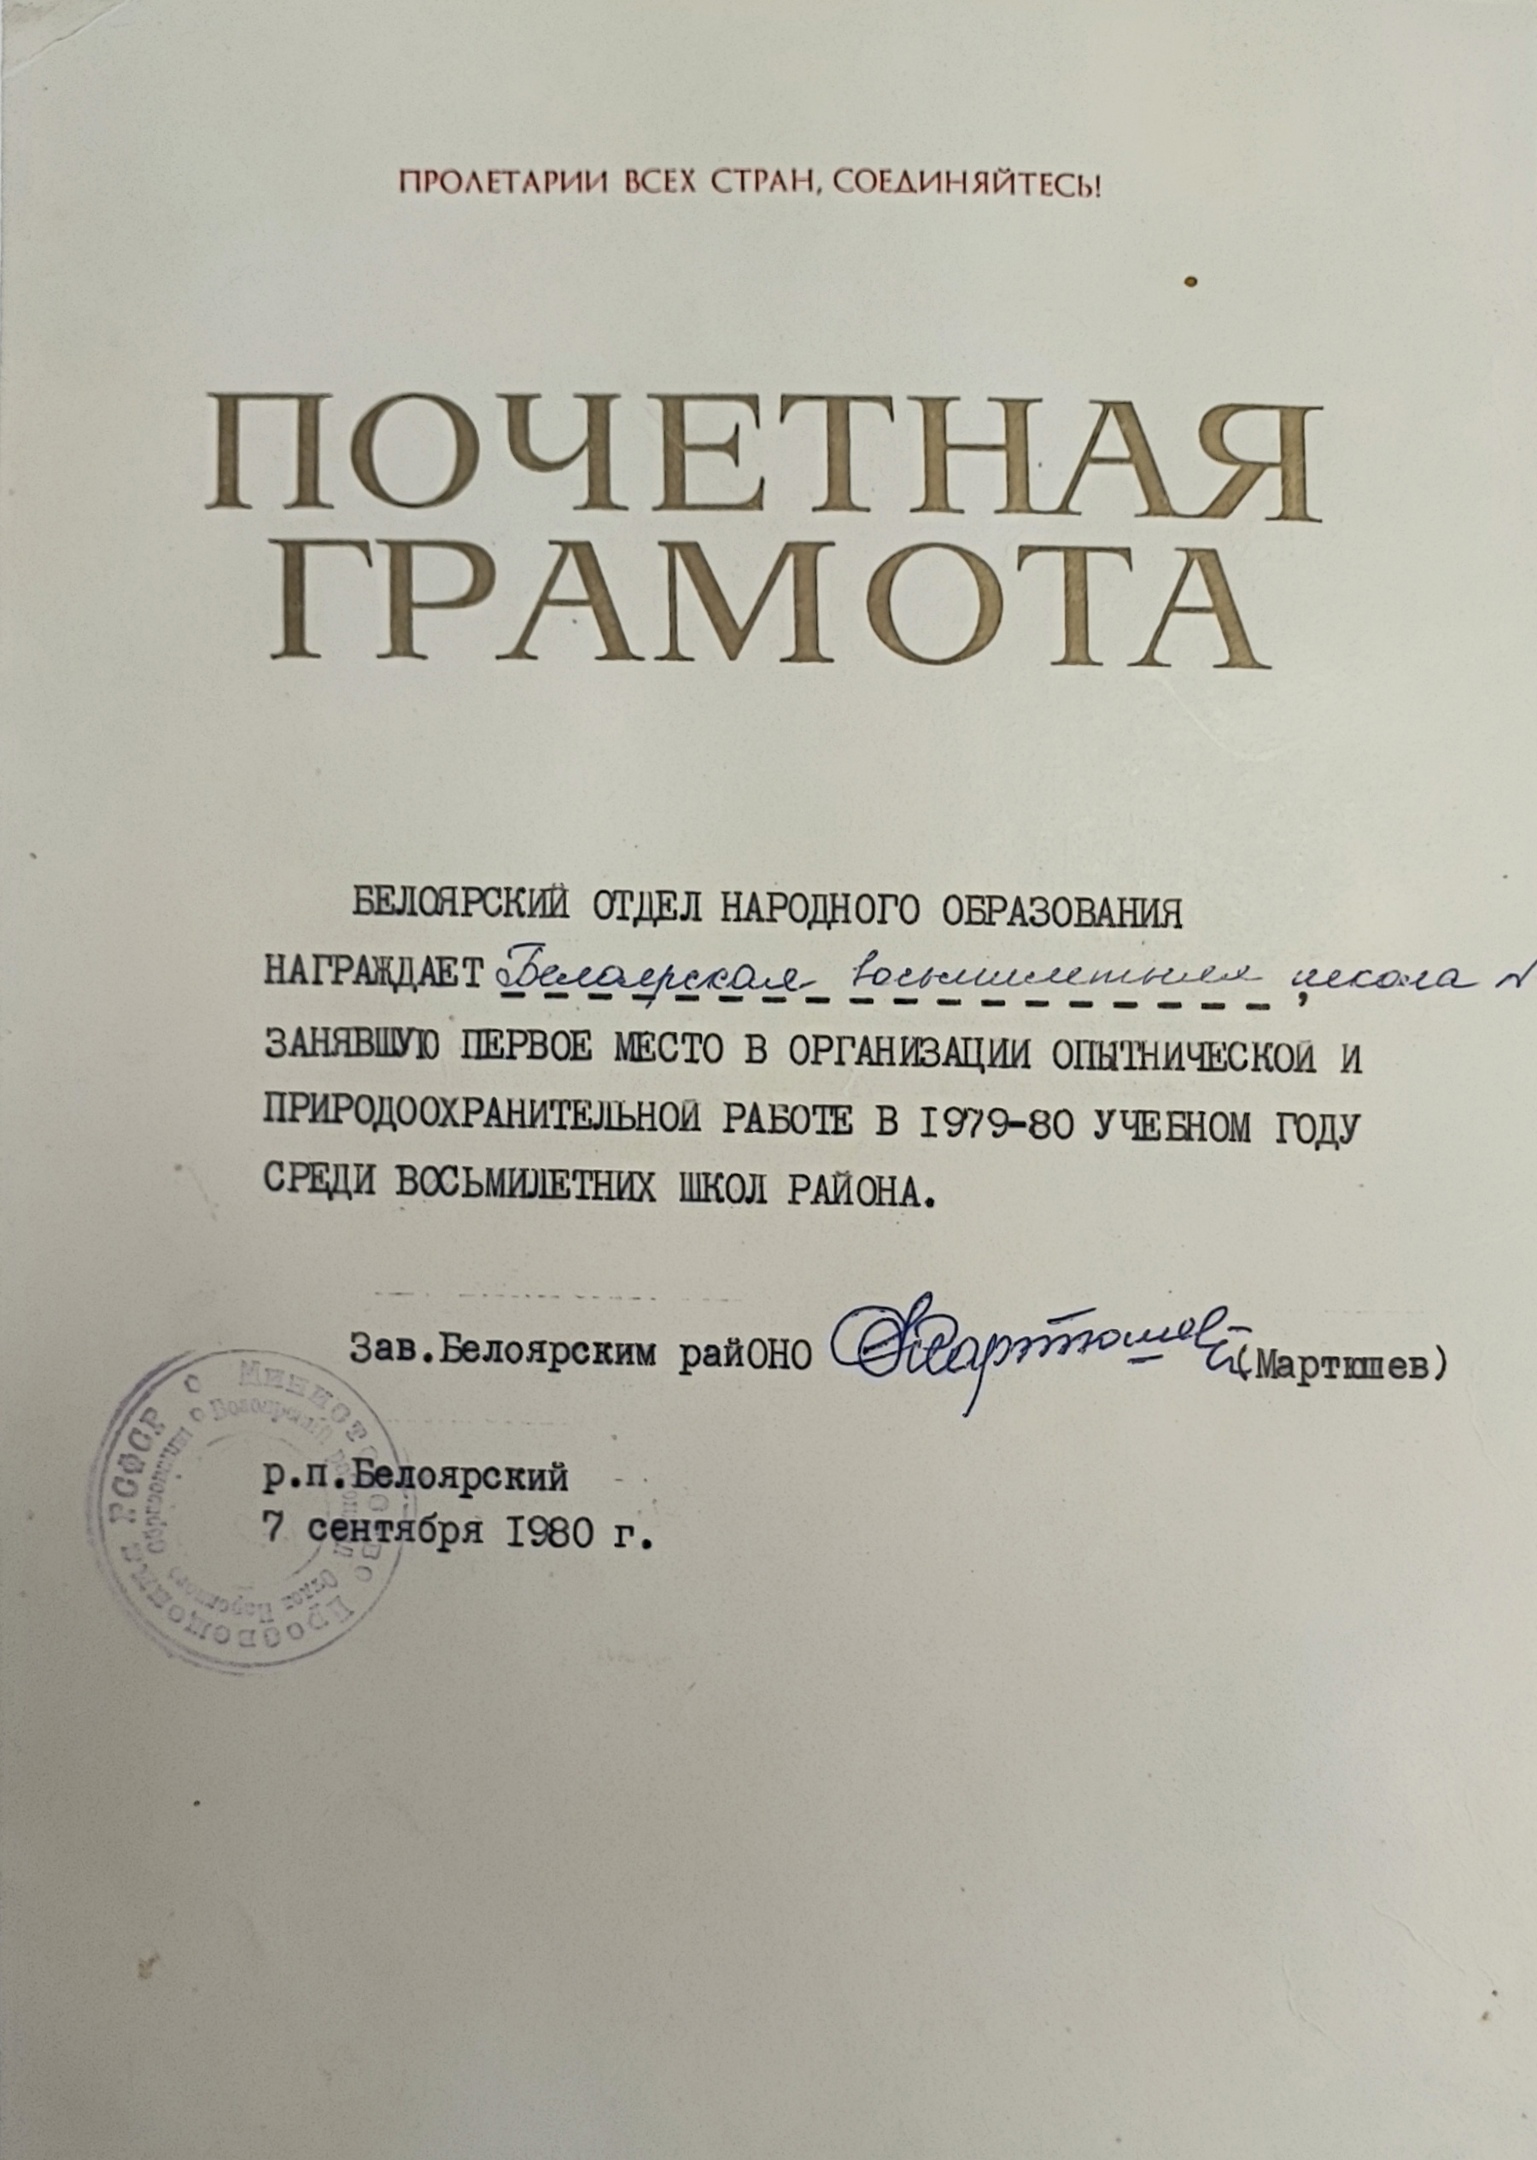 ПРОЛЕТАРИИ ВСЕХ СТРАН, СОЕДИНЯЙТЕСЬ!
ПОЧЕТНАЯ
ГРАМОТА
БЕЛОЯРСКИЙ ОТДЕЛ НАРОДНОГО ОБРАЗОВАНИЯ
НАГРАЖДАЕТ Белоярская восьмилетняя школа
ЗАНЯВШУЮ ПЕРВОЕ МЕСТО В ОРГАНИЗАЦИИ ОПЫТНИЧЕСКОЙ И
ПРИРОДООХРАНИТЕЛЬНОЙ РАБОТЕ В I979-80 УЧЕБНОМ ГОДУ
СРЕДИ ВОСЬМИЛЕТНИХ ШКОЛ РАЙОНА.
Зав.Белоярским райОНО Мартюшев (Мартюшев)
р.п.Белоярский
7 сентября I980 г.
Министерство Просвещения РСФСР
Белоярский районный Отдел Народного Образования